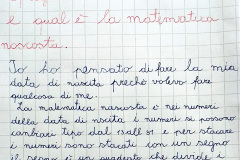 e qual è la matematica
nascosta.
Io ho pensato di fare la mia
data di nascita perchè volevo fare
qualcosa di me.
La matematica nascosta è nei numeri
della data di nscita i numeri si possono
cambiare tipo dal 1 all' 31 e per staccare
i numeri sono stacati con un segno
il segno è un quadrato che divide i